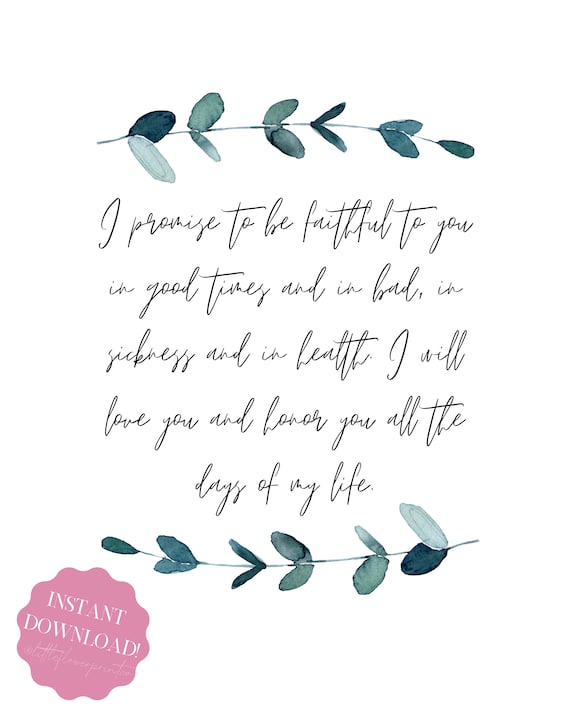 I promise to be faithful to you
in good times and in bad, in
sickness and in health. I will
love you and honor you all the
days of my life.
INSTANT
DOWNLOAD!